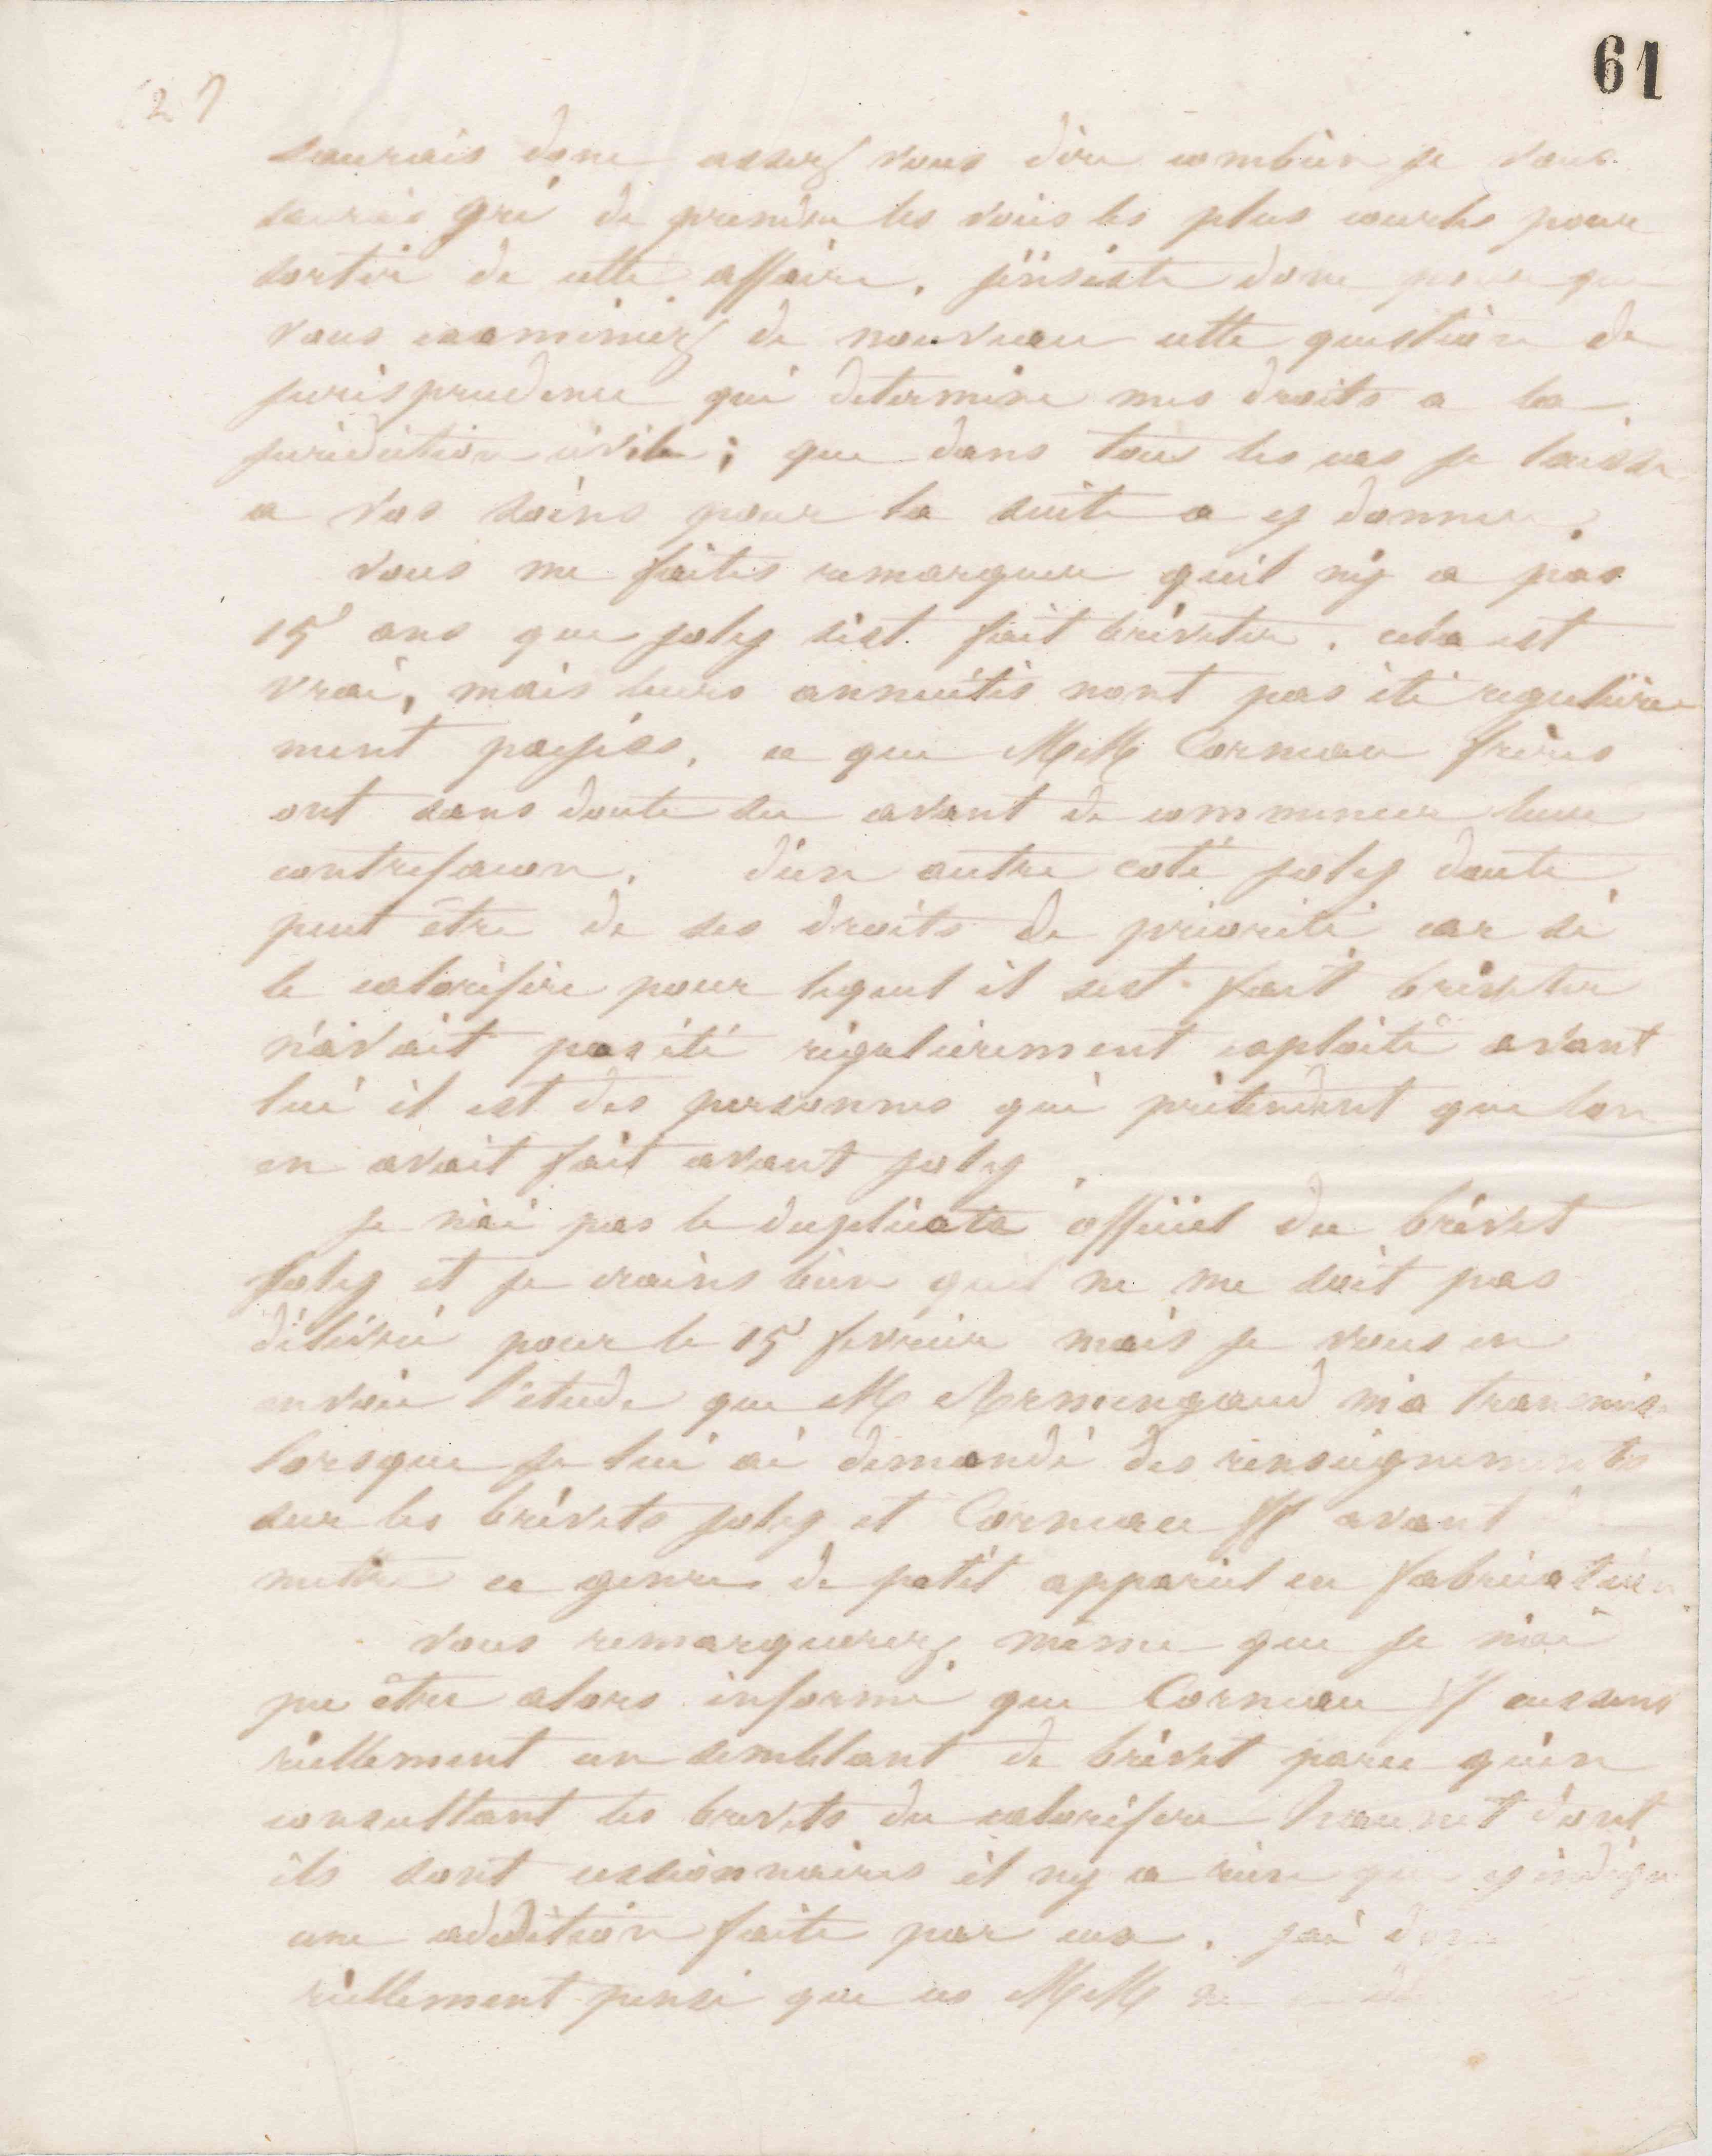 61
(2)
saurais donc assez vous dire combien je vous
saurais gré de prendre les voies les plus courtes pour
sortir de cette affaire. j'insiste donc pour que
vous examiniez de nouveau cette question de
jurisprudence qui determine mes droits a la
juridiction civile; que dans tous les cas je laisse
a vos soins pour la suite a y donner.
vous me faites remarquer quil n'y a pas
15 ans que joly s'est fait bréveter. cela est
vrai, mais leurs annuités nont pas été regulière
ment payées, ce que MM Corneau frères
ont sans doute su avant de commencer leur
contrefacon. d'un autre coté joly doute
peut être de ses droits de priorité car si
le calorifère pour lequel il sest fait bréveter
n'avait pas été régulièrement exploité avant
lui il est des personnes qui prétendent que lon
en avait fait avant joly.
je n'ai pas le duplicata officiel du brévet
joly et je crains bien quil ne me soit pas
délivré pour le 15 fevrier mais je vous en
envoie l'etude que M Armengaud m'a transmise
lorsque je lui ai demandé des renseignements
sur les brévets joly et Corneau ff avant
mettre ce genre de petit appareil en fabrication
vous remarquerez même que je n'ai
pu être alors informé que Corneau ff eussent
réellement un semblant de brévet parce qu'en
consultant les brevets du calorifère dont
ils sont cessionnaires il ny a rien qui y indique
une addition faite par eux. j'ai donc
réellement pensé que ces MM